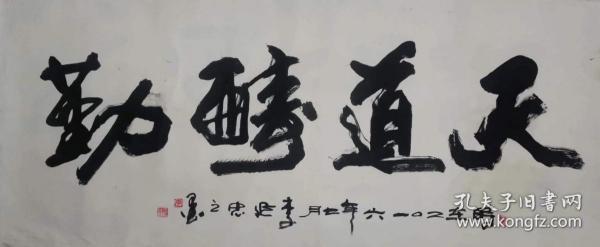 天道醻勤
二〇一六年七月李忠之墨
孔夫子旧书网
kongfz.com